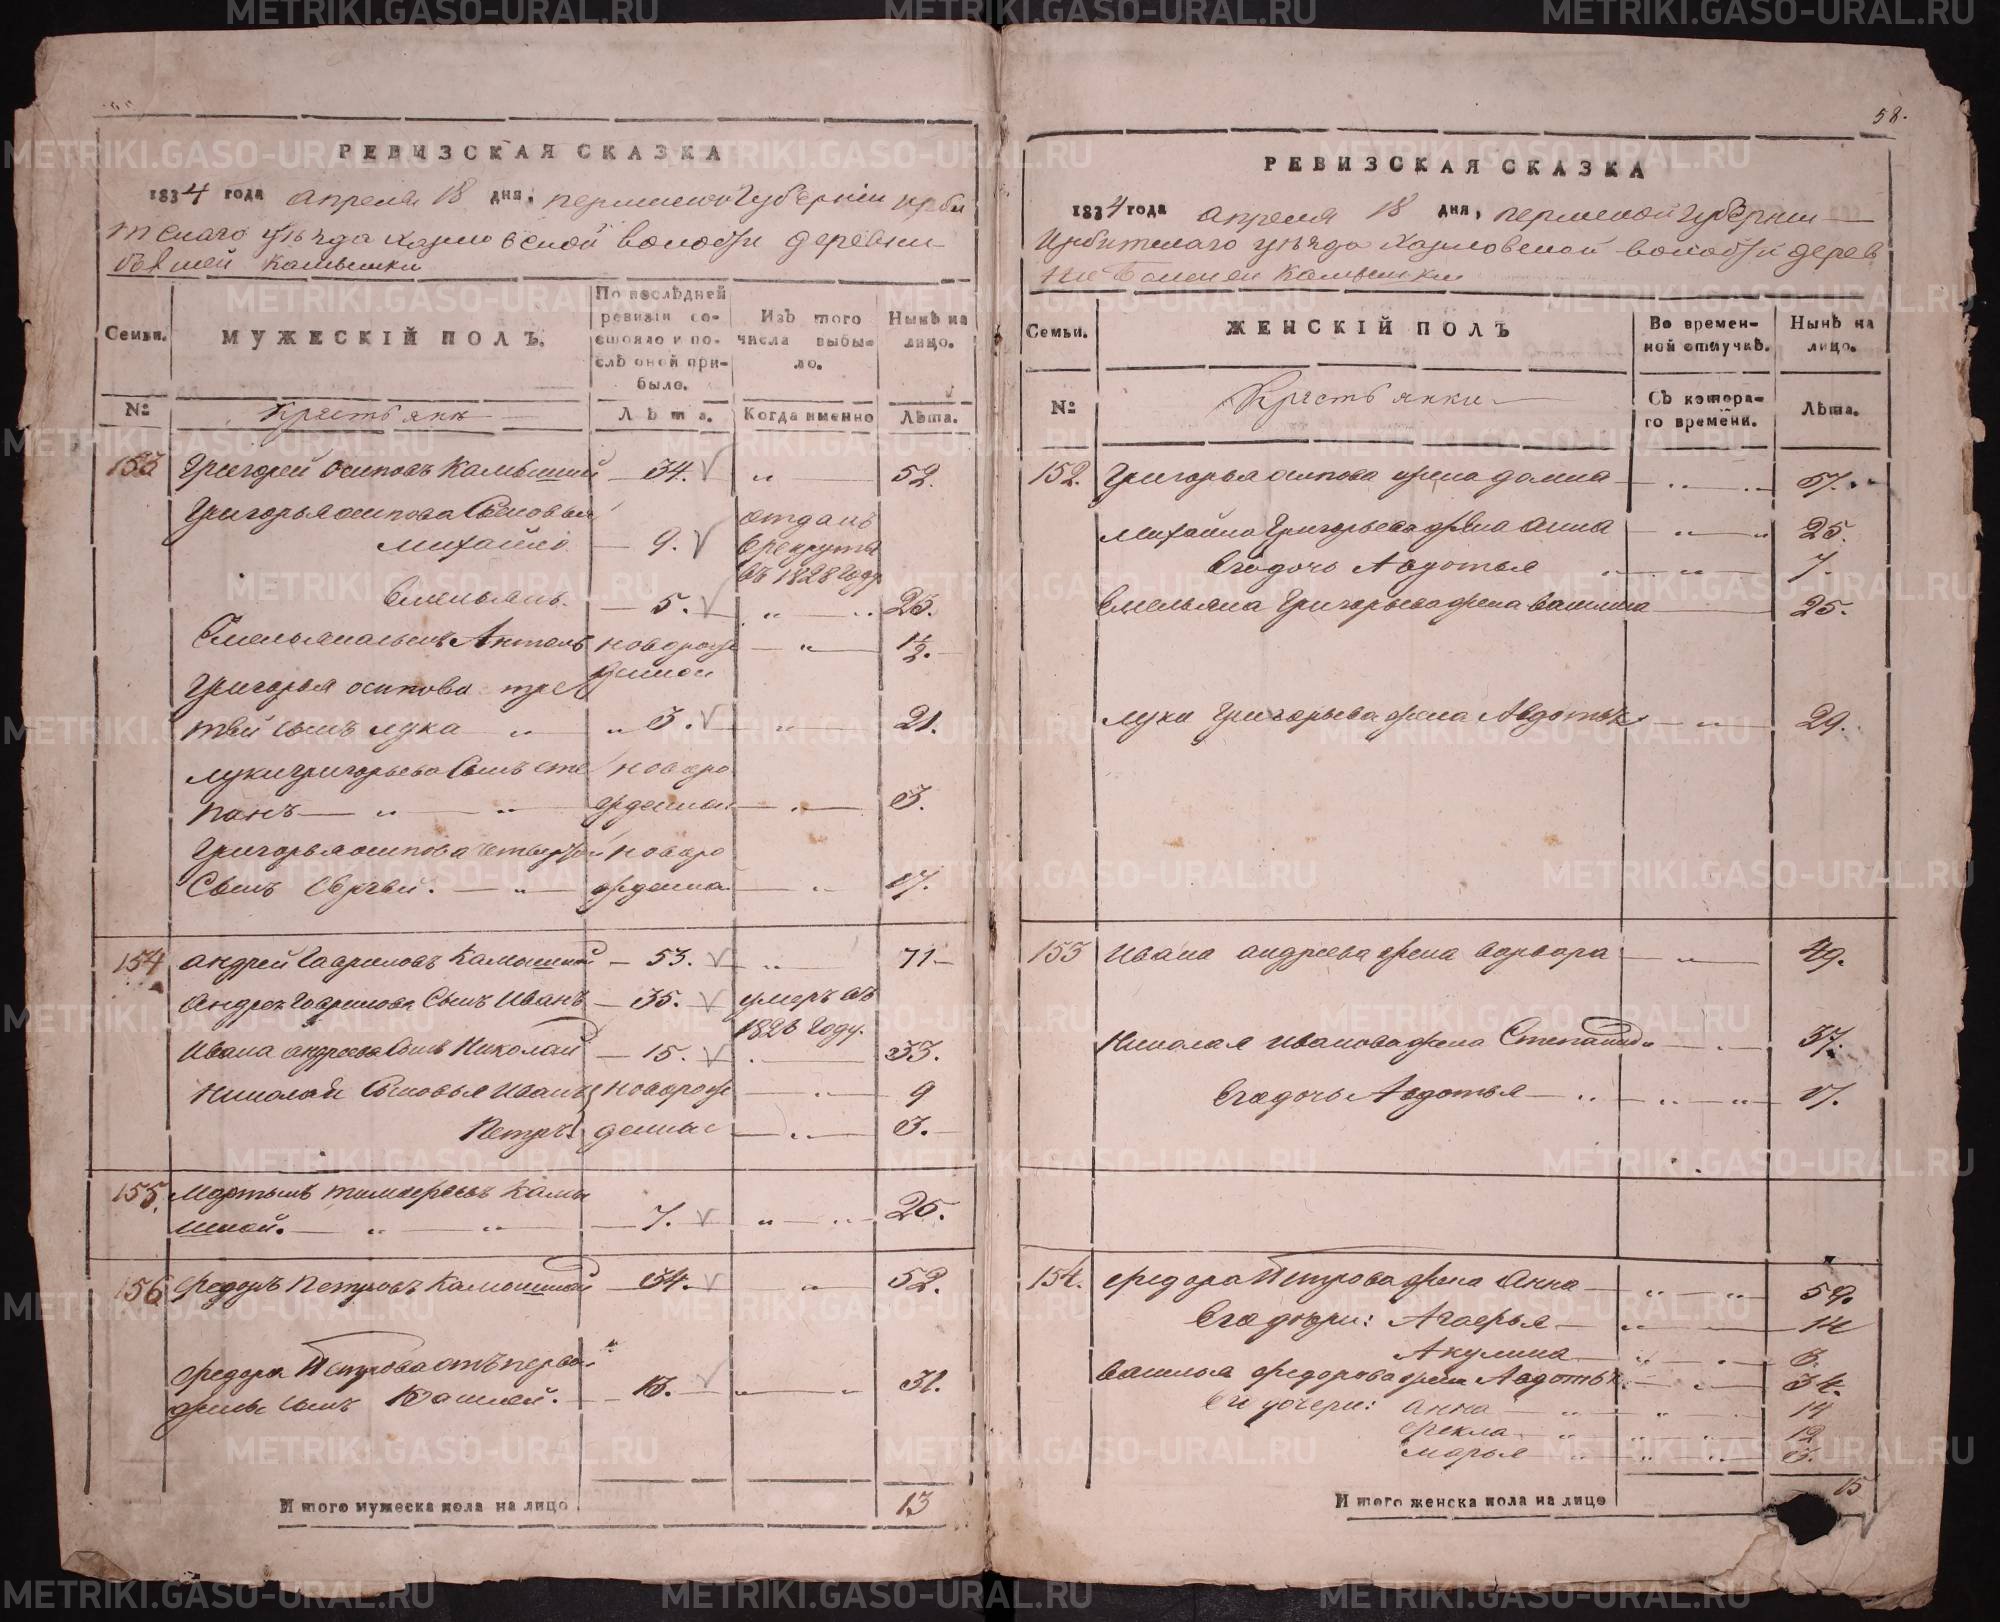 РЕВИЗСКАЯ СКАЗКА
1834 года апреля 18 дня, пермской Губернии ирби
тскаго уѣзда Харловской волости деревни
Камышки
Семьи.
МУЖЕСКІЙ ПОЛЪ.
По послѣдней ревизіи состояло и послѣ оной прибыло.
Изъ того числа выбыло.
Нынѣ на лицо.
№
Крестьяне
Лѣта.
Когда именно
Лѣта.
153 Григорей Осиповъ Камышной 34. 52.
Григорья осипова Сыновья отданъ
Михайло 9. в рекруты
въ 1828 году
Емельянъ. 5. 23.
Емельяна сынъ Антонъ новорож 1 1/2.
денной
Григорья осипова тре
тей сынъ лука 3. 21.
луки григорьева Сынъ Сте новоро
панъ жденной 3.
Григорья осипова четвертой новоро
Сынъ Сергѣй. жденна 17.
154 андрей Гавриловъ Камышной 53. 71
Андрея Гаврилова Сынъ Иванъ 35. умеръ въ
1826 году.
Ивана андреева Сынъ Николай 15. 33.
Николая Сыновья Иванъ новорож 9
Петръ денные 3.
155. Мартынъ тимофеевъ Камы
шной. 7. 25.
156 федоръ Петровъ Камышной 34. 52.
федора Петрова отъ перво
жены сынъ Василей. 13. 31.
Итого мужеска пола на лицо 13
58.
РЕВИЗСКАЯ СКАЗКА
1834 года апреля 18 дня, пермской губернии
Ирбитскаго уѣзда Харловской волости дерев
ни Камышки
Семьи.
ЖЕНСКІЙ ПОЛЪ
Во временной отлучкѣ.
Нынѣ на лицо.
№
Крестьянки
Съ котораго времени.
Лѣта.
152. Григорья осипова жена домна 57.
Михайла Григорьева жена анна 25.
Его дочь Авдотья 7.
Емельяна Григорьева жена Василиса 25.
луки Григорьева жена Авдотья 29.
153 Ивана андреева жена варвара 49.
Николая иванова жена Степанида 37.
Его дочь Авдотья 17.
154. федора Петрова жена Анна
Его дочери: Агафья 14
Акулина 3.
Василья федорова жена Авдотья 34.
Его дочери: анна 14
фекла 12
марья 3.
Итого женска пола на лице 15
METRIKI.GASO-URAL.RU